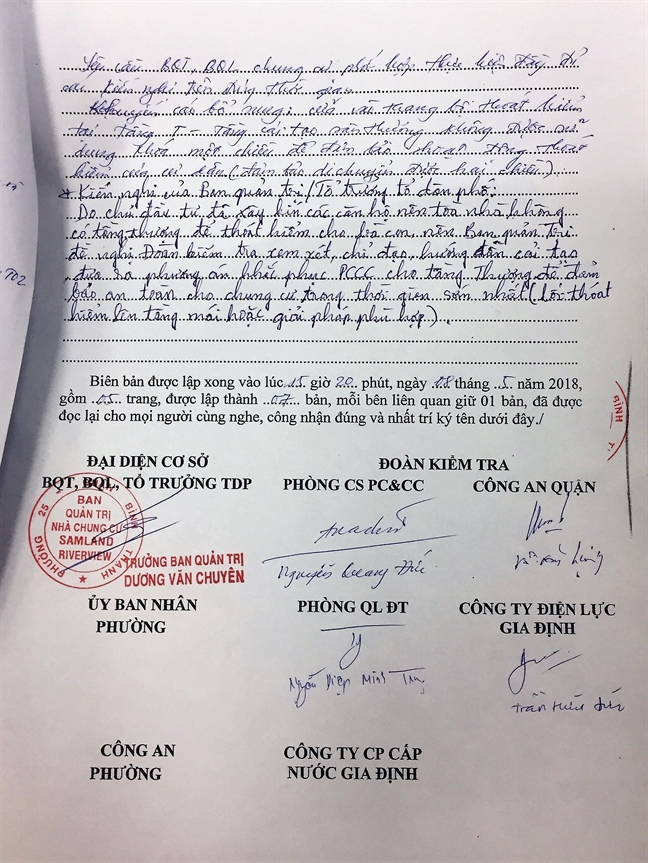 Yêu cầu BQT, BQL chung cư phối hợp thực hiện đầy đủ
các kiến nghị trên đúng thời gian
Khuyến cáo bổ sung: cửa vải trang bị thoát hiểm
tại tầng T - Tầng cải tạo sân thượng không được sử
dụng khóa một chiều để đảm bảo thoát
hiểm của cư dân (đảm bảo di chuyển được hai chiều)
* Kiến nghị của Ban quản trị / Tổ trưởng tổ dân phố:
Do chủ đầu tư đã xây kín các căn hộ nên toà nhà không
có tầng thượng để thoát hiểm cho bà con, nên Ban quản trị
đề nghị Đoàn kiểm tra xem xét, chỉ đạo, hướng dẫn cải tạo
đưa ra phương án khắc phục PCCC cho tầng Thượng để đảm
bảo an toàn cho chung cư trong thời gian sớm nhất (lối thoát
hiểm lên tầng mái hoặc giải pháp phù hợp).
T02
Biên bản được lập xong vào lúc 15 giờ 20 phút, ngày 08 tháng 5 năm 2018,
gồm 05 trang, được lập thành 07 bản, mỗi bên liên quan giữ 01 bản, đã được
đọc lại cho mọi người cùng nghe, công nhận đúng và nhất trí ký tên dưới đây./
BÌNH T
ĐẠI DIỆN CƠ SỞ
BQT, BQL, TỔ TRƯỞNG TDP
ĐOÀN KIỂM TRA
PHÒNG CS PC&CC
CÔNG AN QUẬN
PHƯỜNG 25
BÌNH THẠNH
BAN
QUẢN TRỊ
NHÀ CHUNG CƯ
SAMLAND
RIVERVIEW
TRƯỞNG BAN QUẢN TRỊ
DƯƠNG VĂN CHUYÊN
Nguyễn Quang Đức
ỦY BAN NHÂN
PHƯỜNG
PHÒNG QL ĐT
CÔNG TY ĐIỆN LỰC
GIA ĐỊNH
Điệp Minh
Trần Hữu
CÔNG AN
PHƯỜNG
CÔNG TY CP CẤP
NƯỚC GIA ĐỊNH